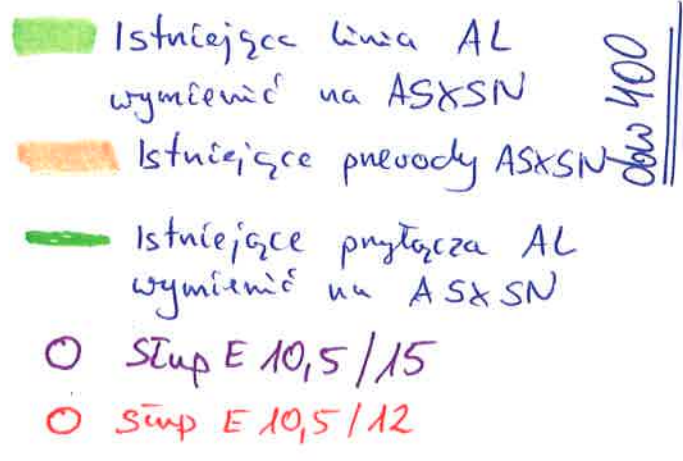 Istniejące linia AL
wymienić na ASXSN
Istniejące przewody ASXSN
Istniejące przyłącza AL
wymienić na ASXSN
Słup E 10,5/15
Słup E 10,5/12
400